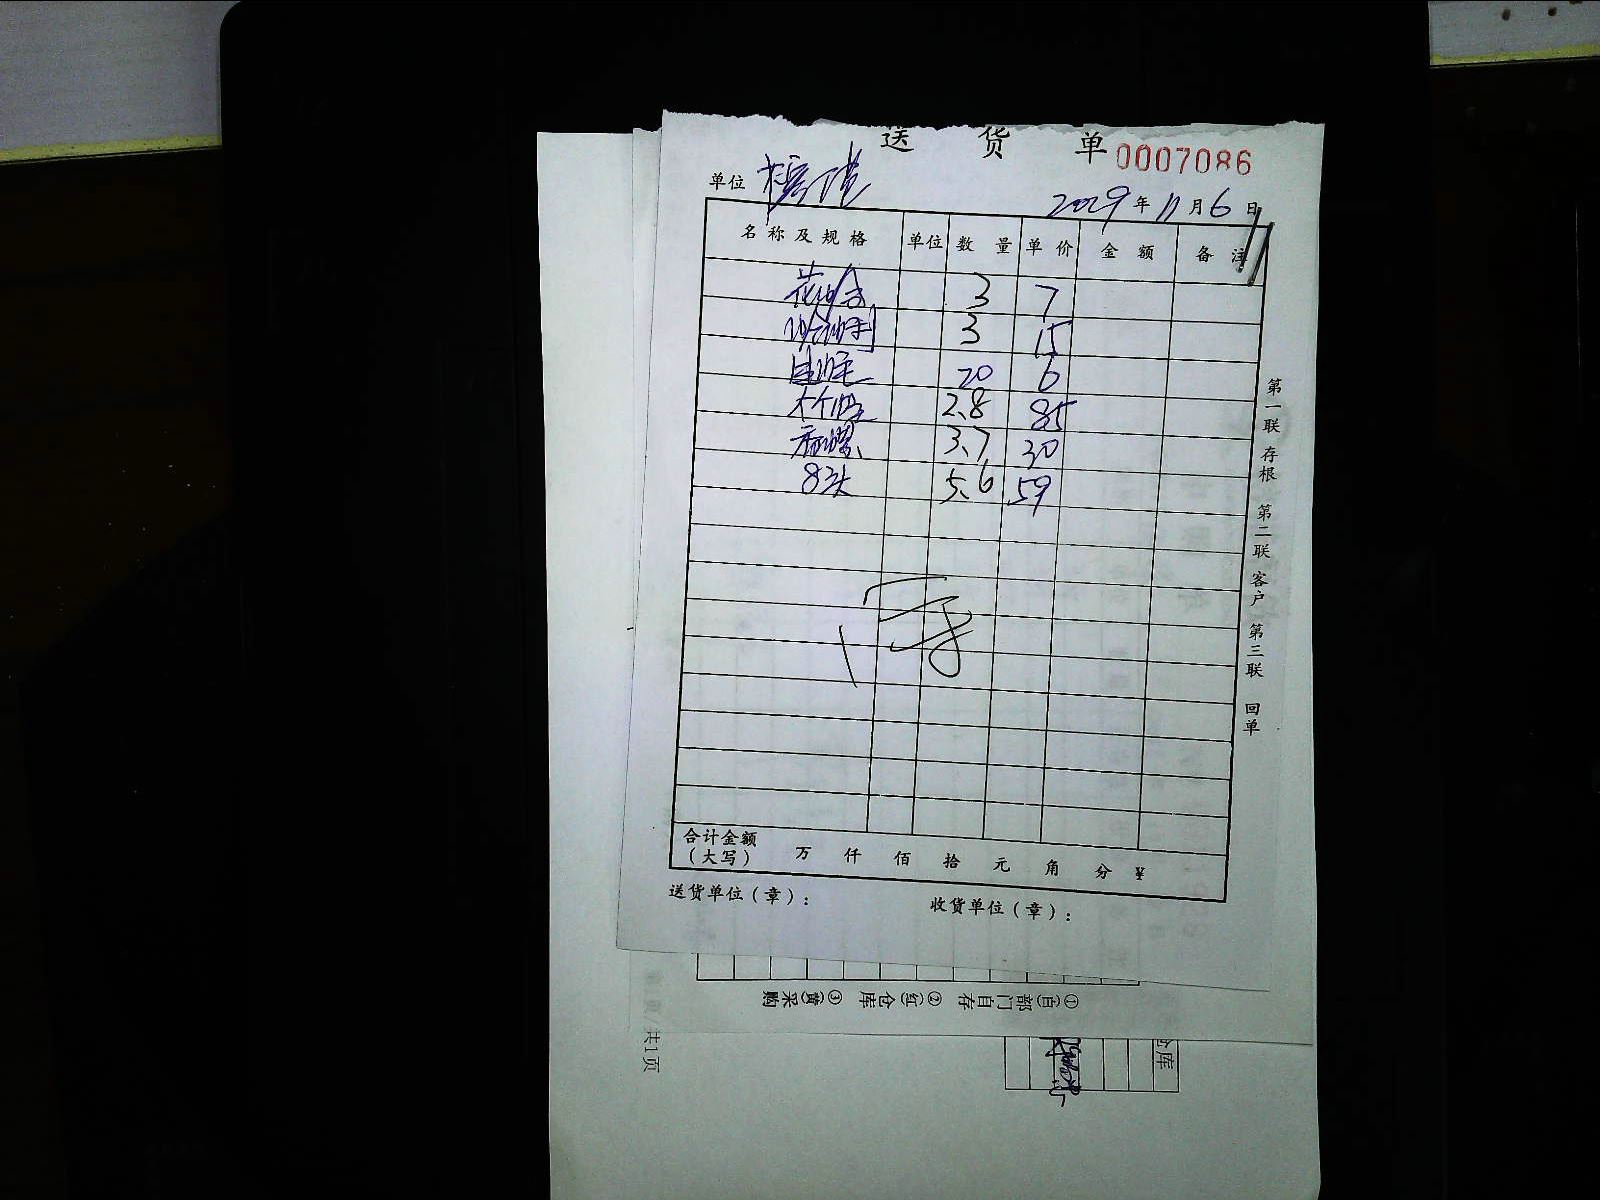 送 货 单 0007086
单位
2029年11月6日
名称及规格 单位 数量 单价 金额 备注
花蛤 3 7
3 15
20 6
2.8 85
3.7 30
8头 5.6 59
合计金额
(大写) 万 仟 佰 拾 元 角 分 ¥
送货单位(章): 收货单位(章):
第一联 存根 第二联 客户 第三联 回单
①(白)部门自存 ②(红)仓库 ③(黄)采购
共1页
仓库